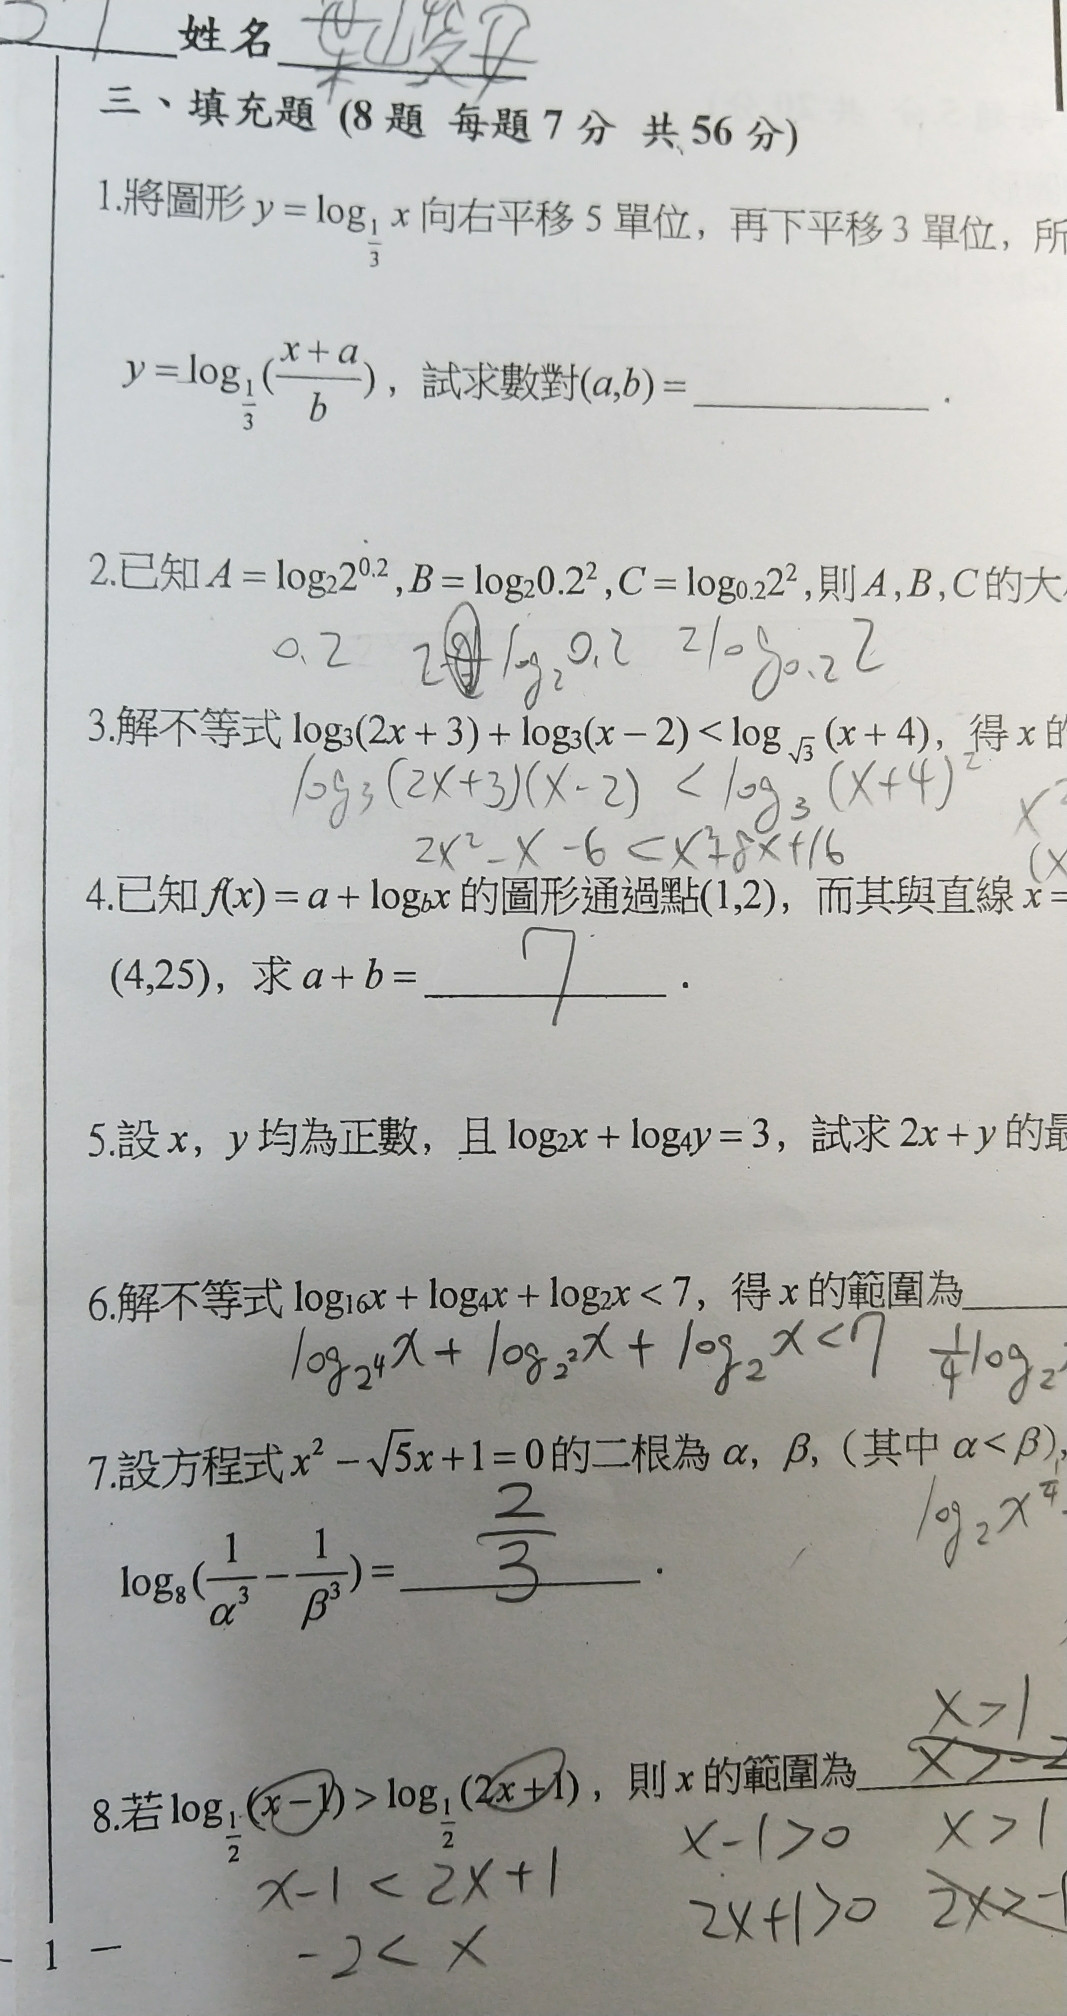 姓名 葉
三、填充題 (8題 每題7分 共56分)
1.將圖形 y = log_{1/3} x 向右平移 5 單位，再下平移 3 單位，所
y = log_{1/3}(\frac{x+a}{b})，試求數對(a,b) = ________.
2.已知 A = log₂2^{0.2}, B = log₂0.2², C = log_{0.2}2², 則 A, B, C 的大
0.2 2 log₂0.2 2log_{0.2}2
3.解不等式 log₃(2x + 3) + log₃(x − 2) < log_{√3}(x + 4)，得 x 的
log₃(2x+3)(x-2) < log₃(x+4)²
2x²-x-6 < x²+8x+16
4.已知 f(x) = a + log_b x 的圖形通過點(1,2)，而其與直線 x =
(4,25)，求 a + b = 7 .
5.設 x，y 均為正數，且 log₂x + log₄y = 3，試求 2x + y 的最
6.解不等式 log₁₆x + log₄x + log₂x < 7，得 x 的範圍為
log_{2⁴}x + log_{2²}x + log₂x < 7 \frac{1}{4}log₂
7.設方程式 x² − √5x + 1 = 0 的二根為 α，β，（其中 α < β），
log₂x^{1/4}
log₈(\frac{1}{α³} − \frac{1}{β³}) = \frac{2}{3} .
x>1
x>-2
8.若 log_{1/2}(x−1) > log_{1/2}(2x+1)，則 x 的範圍為
x-1>0 x>1
x-1 < 2x+1
2x+1>0 2x>-1
-2 < x
- 1 -